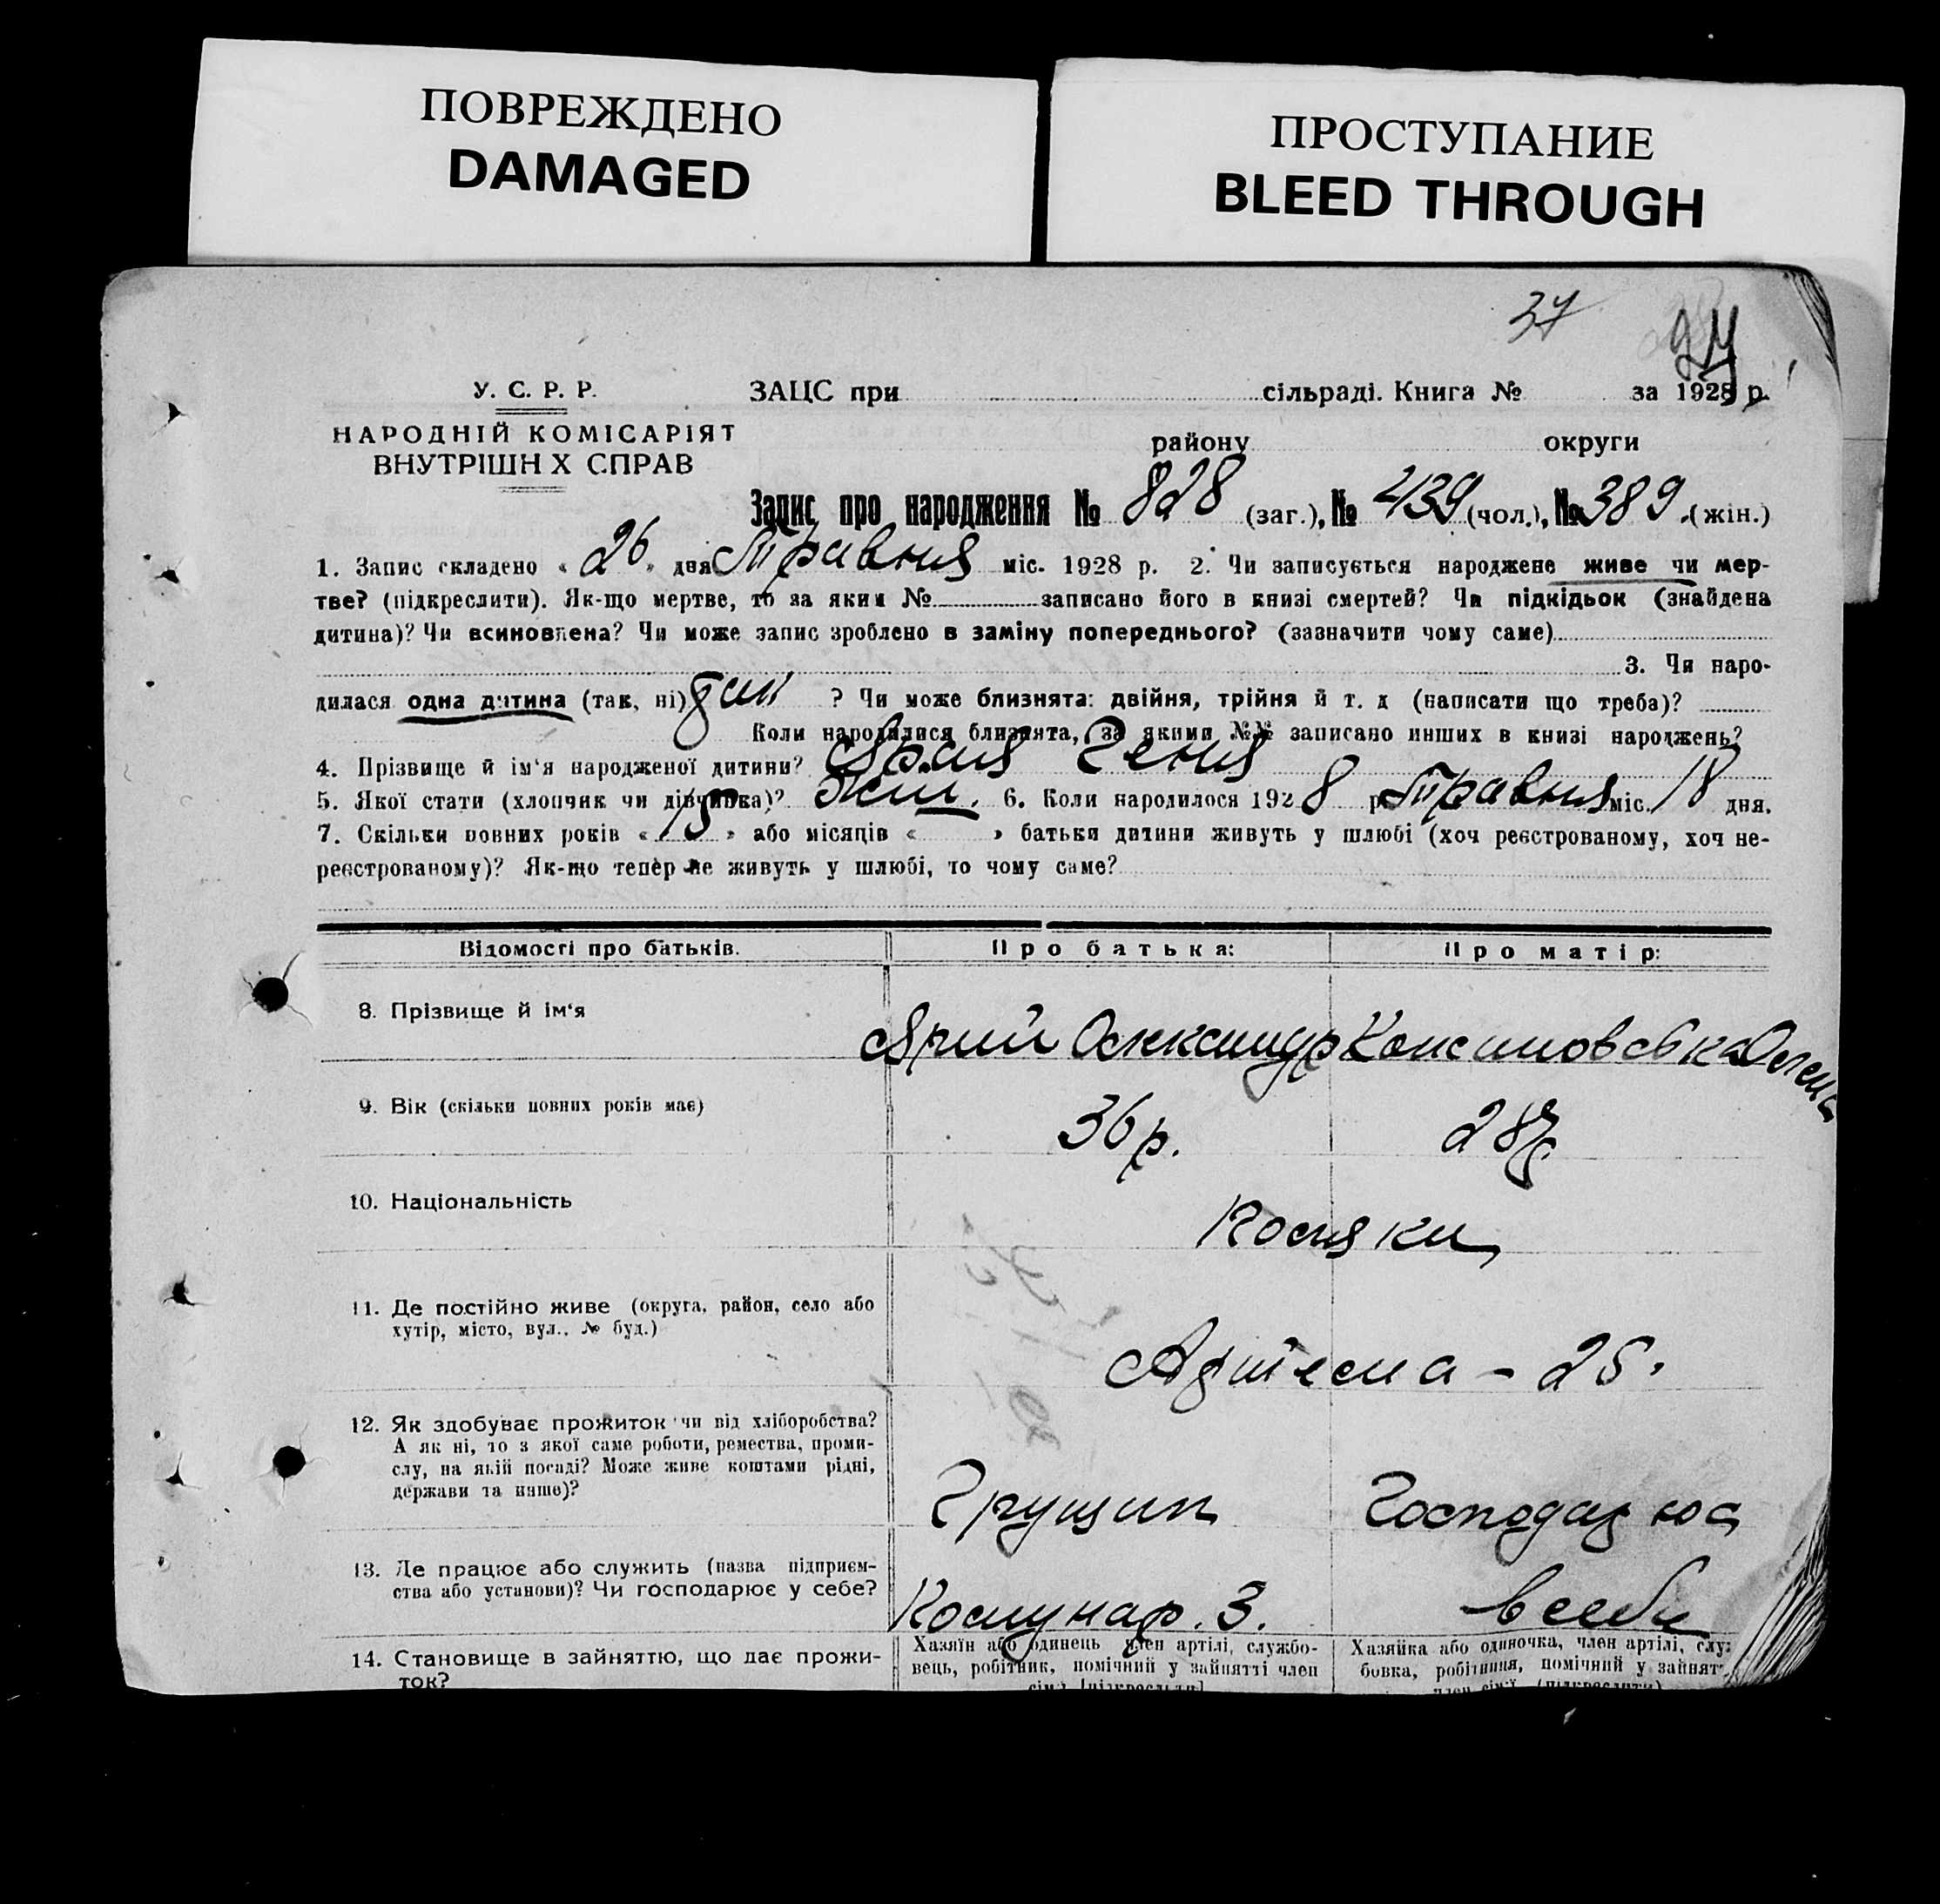 ПОВРЕЖДЕНО
DAMAGED
ПРОСТУПАНИЕ
BLEED THROUGH
37
У. С. Р. Р.
НАРОДНІЙ КОМІСАРІЯТ
ВНУТРІШН Х СПРАВ
ЗАЦС при сільраді. Книга № за 1928 р.
району округи
Запис про народження № 828 (заг.), № 439 (чол.), № 389 (жін.)
1. Запис складено « 26 » дня Травня міс. 1928 р. 2. Чи записується народжене живе чи мер-
тве? (підкреслити). Як-що мертве, то за яким № записано його в книзі смертей? Чи підкідьок (знайдена
дитина)? Чи всиновлена? Чи може запис зроблено в заміну попереднього? (зазначити чому саме)
3. Чи наро-
дилася одна дитина (так, ні) ? Чи може близнята: двійня, трійня й т. д (написати що треба)?
Коли народилися близнята, за якими №№ записано инших в книзі народжень?
4. Прізвище й ім'я народженої дитини? Геня
5. Якої стати (хлопчик чи дівчинка)? жін. 6. Коли народилося 1928 р Травня міс. 18 дня.
7. Скільки повних років « » або місяців « » батьки дитини живуть у шлюбі (хоч реєстрованому, хоч не-
реєстрованому)? Як-що тепер не живуть у шлюбі, то чому саме?
Відомості про батьків. Про батька: Про матір:
8. Прізвище й ім'я
Ярий Олександр Олена
9. Вік (скільки повних років має)
36 р. 28 р.
10. Національність
Поляки
11. Де постійно живе (округа, район, село або
хутір, місто, вул., № буд.)
12. Як здобуває прожиток чи від хліборобства?
А як ні, то з якої саме роботи, ремества, проми-
слу, на якій посаді? Може живе коштами рідні,
держави та инше)?
Грущик Господарює
13. Де працює або служить (назва підприєм-
ства або установи)? Чи господарює у себе?
Комунар. 3. в себе
14. Становище в зайняттю, що дає прожи-
ток?
Хазяїн або одинець член артілі, службо-
вець, робітник, помічний у зайнятті член
сім'ї [підкреслити]
Хазяйка або одиночка, член артілі, служ
бовка, робітниця, помічний у зайнят
член сім'ї (підкреслити)